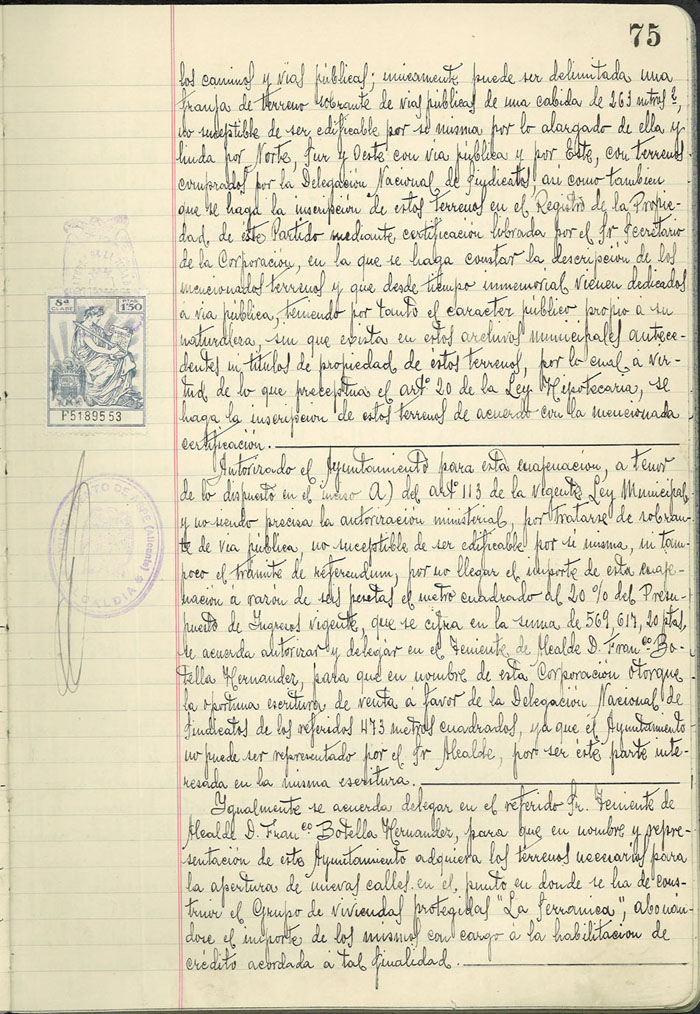 75
los caminos y vias públicas; unicamente puede ser delimitada una
franja de terreno sobrante de vias públicas de una cabida de 263 mtros 2,
no suceptible de ser edificable por si misma por lo alargado de ella y
linda por Norte, Sur y Oeste con via pública y por Este, con terrenos
comprados por la Delegación Nacional de Sindicatos asi como tambien
que se haga la inscripción de estos terrenos en el Registro de la Propie-
dad de este Partido mediante certificación librada por el Sr Secretario
de la Corporación, en la que se haga constar la descripción de los
mencionados terrenos y que desde tiempo inmemorial vienen dedicados
a via pública, teniendo por tanto el caracter público propio á su
naturaleza, sin que exista en estos archivos municipales antece-
dentes ni titulos de propiedad de éstos terrenos, por lo cual á vir-
tud de lo que preceptua el artº 20 de la Ley Hipotecaria, se
haga la inscripcion de estos terrenos de acuerdo con la mencionada
certificación.
Autorizado el Ayuntamiento para esta enajenación, a tenor
de lo dispuesto en el inciso A.) del artº 113 de la vigente Ley Municipal
y no siendo precisa la autorización ministerial, por tratarse de sobran-
te de via pública, no suceptible de ser edificable por si misma, ni tam-
poco el trámite de referendum, por no llegar el importe de esta enaje-
nacion á razon de seis pesetas el metro cuadrado al 20 % del Presu-
puesto de Ingresos vigente, que se cifra en la suma de 569,617,20 ptas,
se acuerda autorizar y delegar en el Teniente de Alcalde D. Franco Bo-
tella Hernandez, para que en nombre de esta Corporación otorgue
la oportuna escritura de venta á favor de la Delegación Nacional de
Sindicatos de los referidos 473 metros cuadrados, ya que el Ayuntamiento
no puede ser representado por el Sr Alcalde, por ser éste parte inte-
resada en la misma escritura.
Ygualmente se acuerda delegar en el referido Sr. Teniente de
Alcalde D. Franco Botella Hernandez, para que en nombre y repre-
sentación de este Ayuntamiento adquiera los terrenos necesarios para
la apertura de nuevas calles en el punto en donde se ha de cons-
truir el Grupo de viviendas protegidas "La Serranica", abonán-
dose el importe de los mismos con cargo á la habilitacion de
crédito acordada á tal finalidad.
8ª
CLASE
PTAS
1'50
F5189553
ALCALDIA